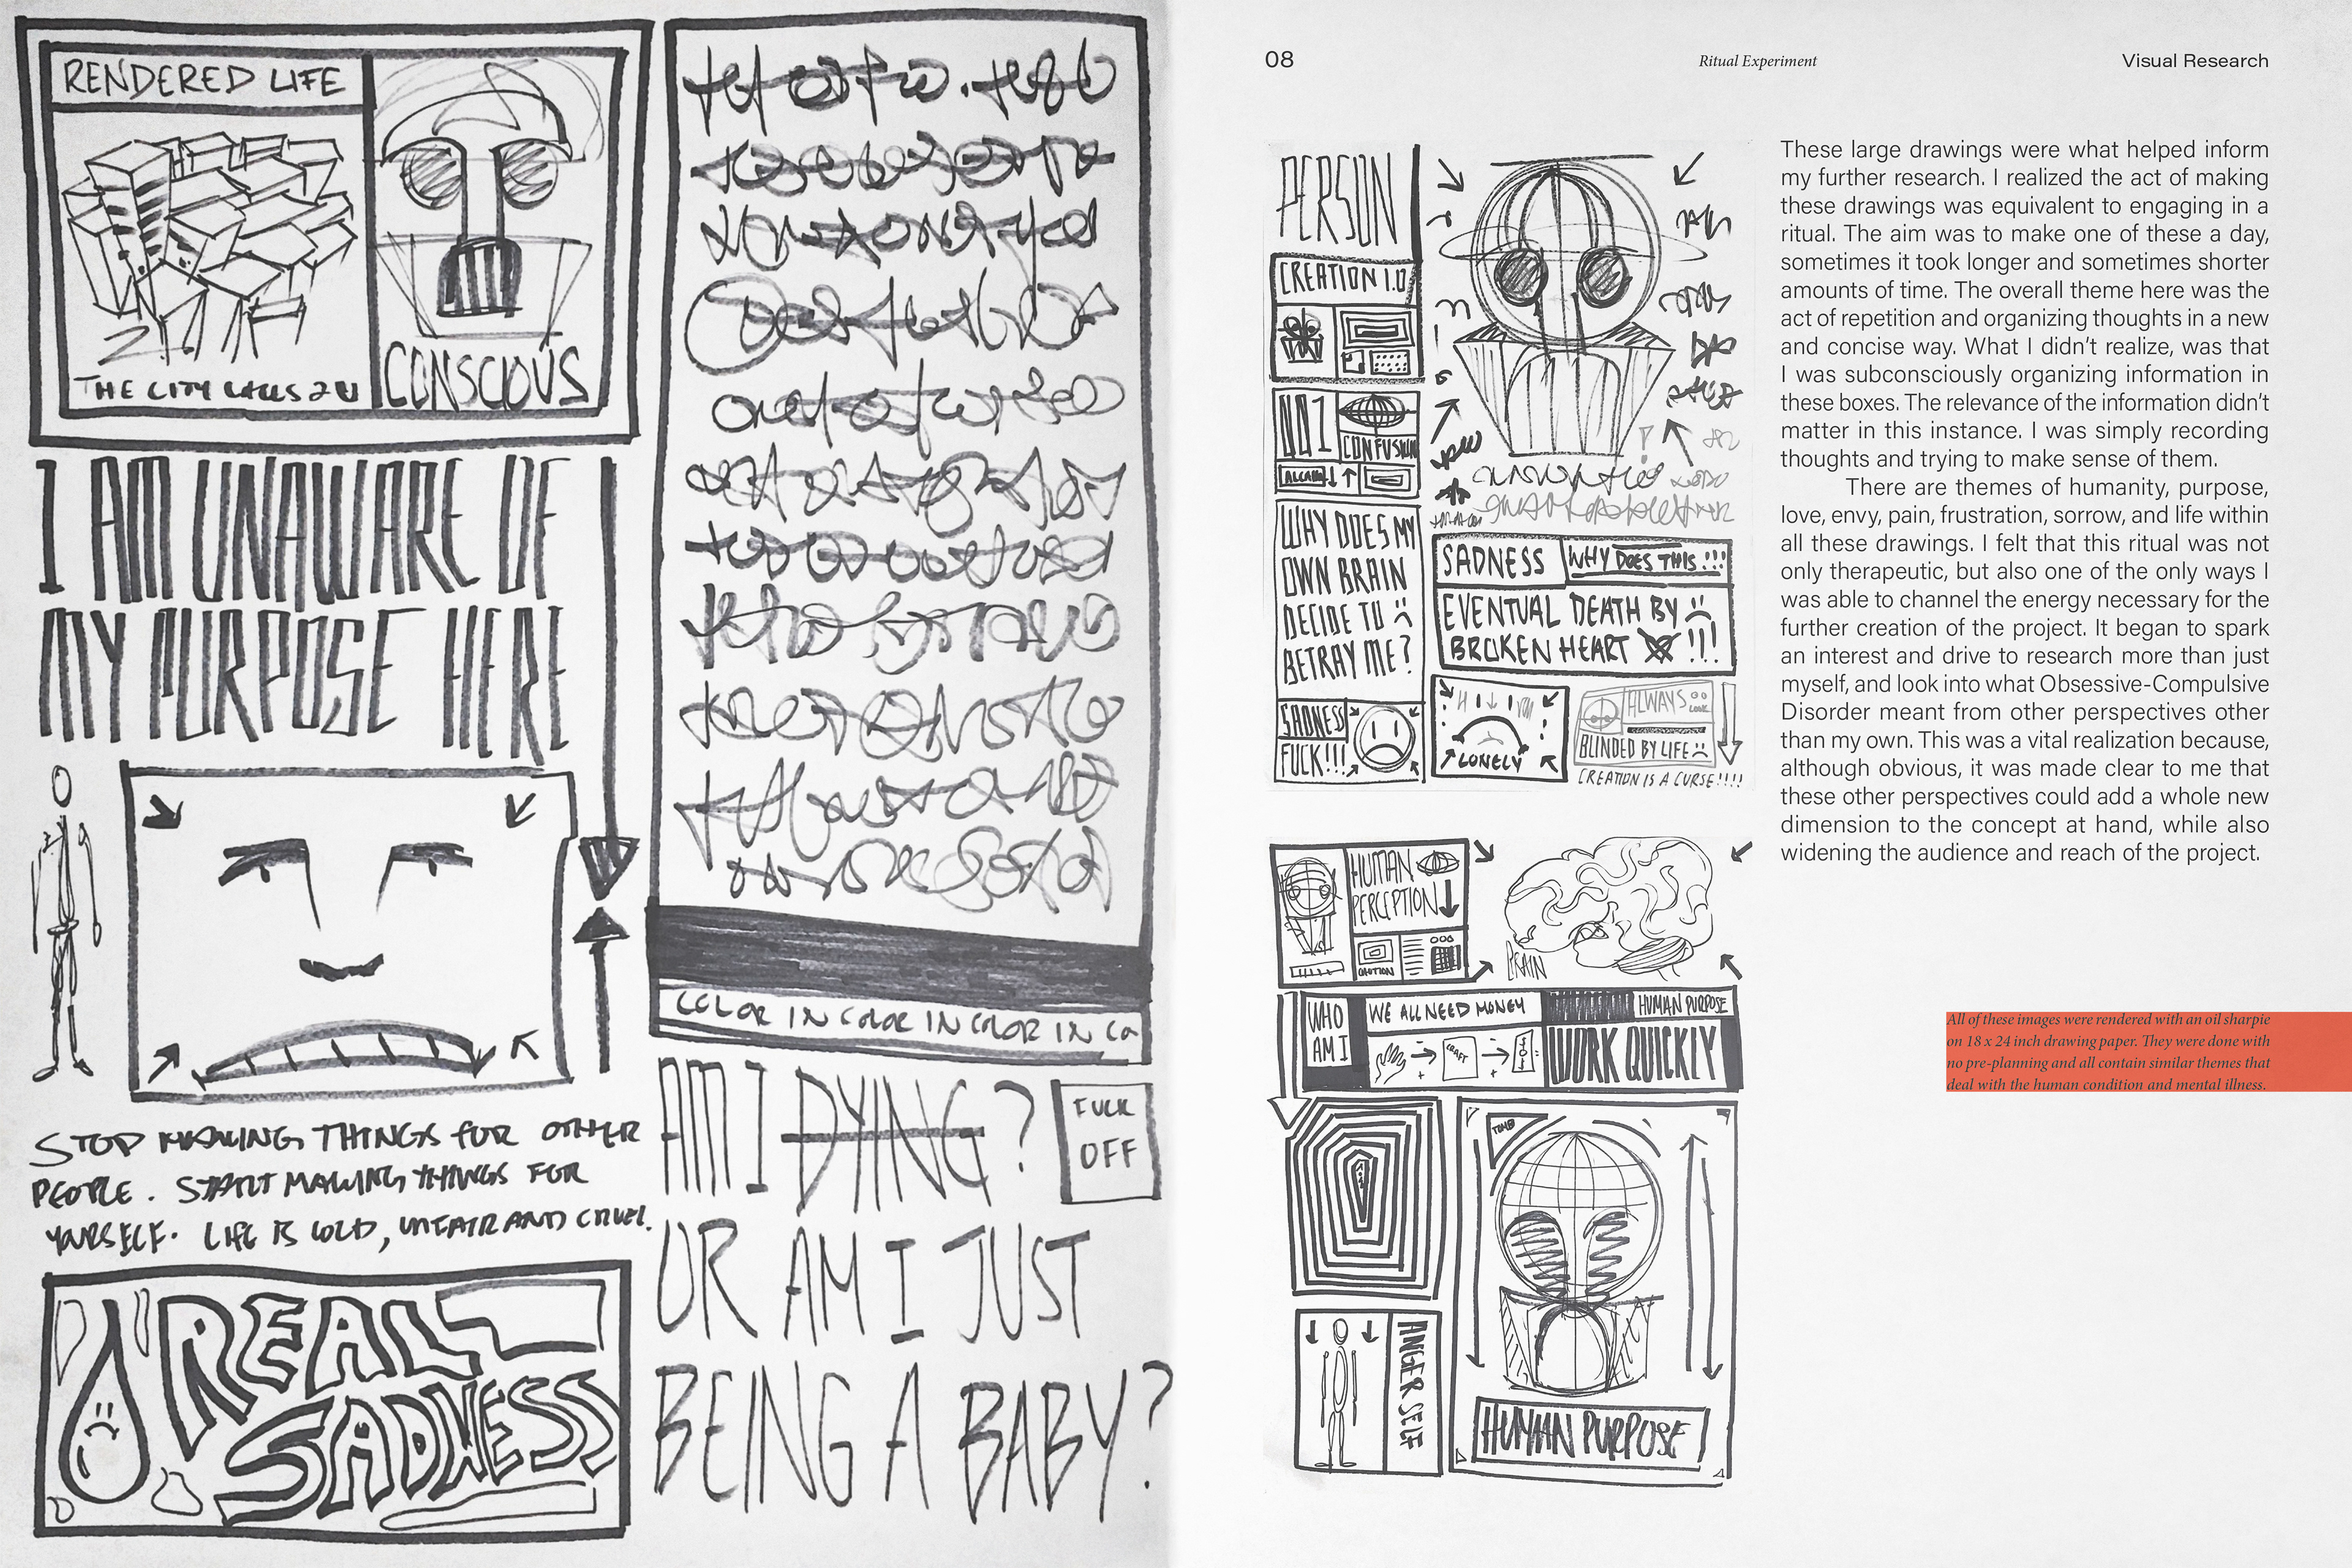 RENDERED LIFE
THE CITY CALLS 2 U
CONSCIOUS
I AM UNAWARE OF
MY PURPOSE HERE
STOP MAKING THINGS FOR OTHER
PEOPLE. START MAKING THINGS FOR
YOURSELF. LIFE IS COLD, UNFAIR AND CRUEL.
REAL
SADNESS
COLOR IN COLOR IN COLOR IN CO
AM I DYING?
FUCK
OFF
OR AM I JUST
BEING A BABY?
08
Ritual Experiment
Visual Research
PERSON
CREATION 1.0
001
CONFUSION
WHY DOES MY
OWN BRAIN
DECIDE TO
BETRAY ME?
SADNESS
FUCK!!!
PAIN
SADNESS
WHY DOES THIS!!!
EVENTUAL DEATH BY
BROKEN HEART !!!
LONELY
ALWAYS
LOOK
BLINDED BY LIFE
CREATION IS A CURSE!!!!
HUMAN
PERCEPTION
CAUTION
BRAIN
WHO
AM I
WE ALL NEED MONEY
HUMAN PURPOSE
CRAFT
WORK QUICKLY
ANGER SELF
HUMAN PURPOSE
These large drawings were what helped inform
my further research. I realized the act of making
these drawings was equivalent to engaging in a
ritual. The aim was to make one of these a day,
sometimes it took longer and sometimes shorter
amounts of time. The overall theme here was the
act of repetition and organizing thoughts in a new
and concise way. What I didn't realize, was that
I was subconsciously organizing information in
these boxes. The relevance of the information didn't
matter in this instance. I was simply recording
thoughts and trying to make sense of them.
There are themes of humanity, purpose,
love, envy, pain, frustration, sorrow, and life within
all these drawings. I felt that this ritual was not
only therapeutic, but also one of the only ways I
was able to channel the energy necessary for the
further creation of the project. It began to spark
an interest and drive to research more than just
myself, and look into what Obsessive-Compulsive
Disorder meant from other perspectives other
than my own. This was a vital realization because,
although obvious, it was made clear to me that
these other perspectives could add a whole new
dimension to the concept at hand, while also
widening the audience and reach of the project.
All of these images were rendered with an oil sharpie
on 18 x 24 inch drawing paper. They were done with
no pre-planning and all contain similar themes that
deal with the human condition and mental illness.